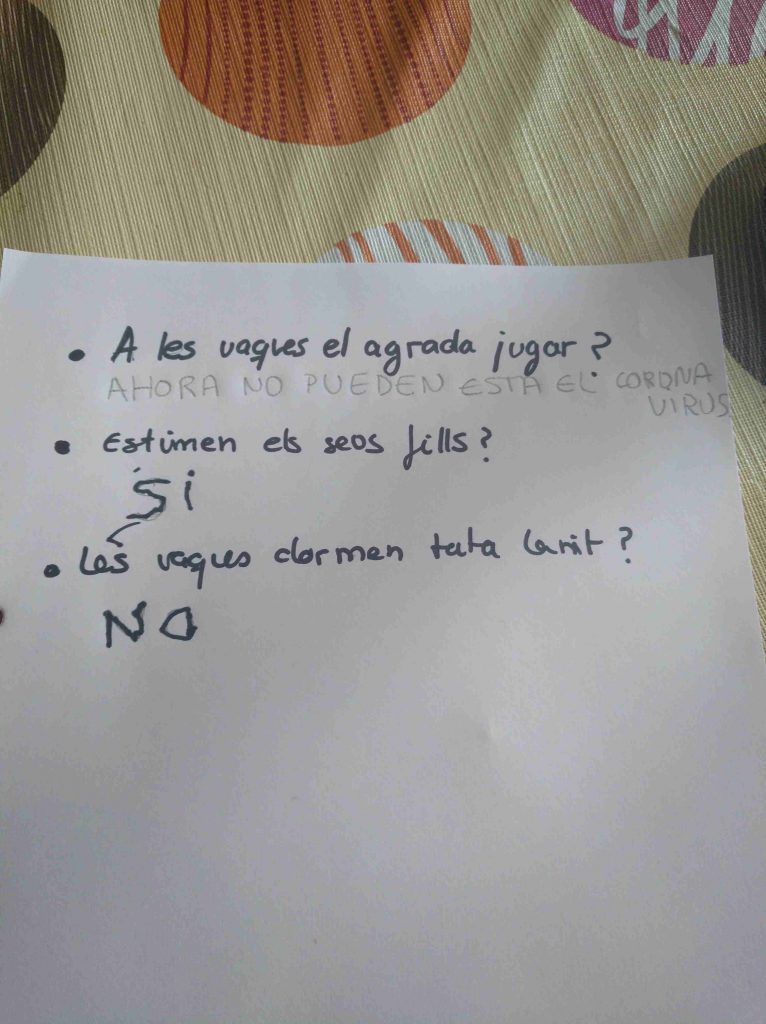 • A les vaques el agrada jugar?
AHORA NO PUEDEN ESTA EL CORONA
VIRUS
• Estimen els seos fills?
SI
• Les vaques dormen tata la nit?
NO